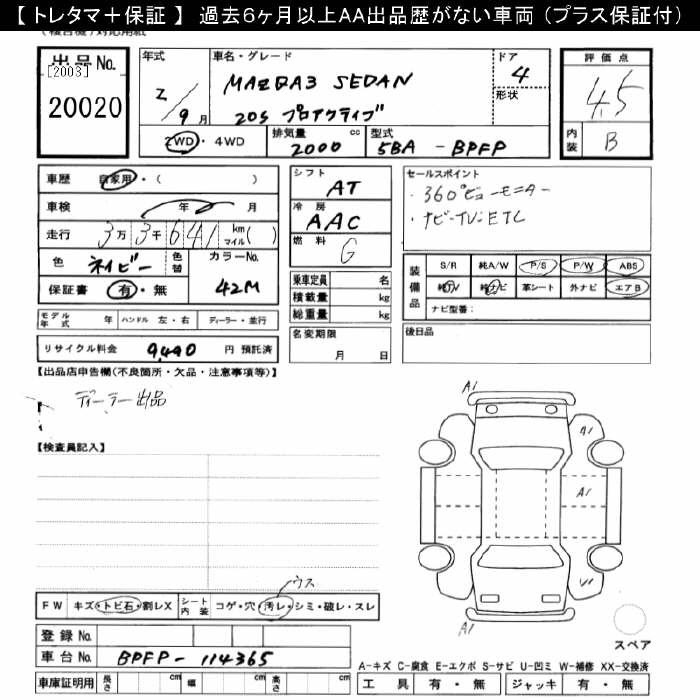 【 トレタマ＋保証 】 過去6ヶ月以上AA出品歴がない車両（プラス保証付）
出品 No.
[2003]
20020
年式
2/9月
車名・グレード
MAZDA3 SEDAN
20S プロアクティブ
ドア
4
形状
評価点
4.5
内装
B
2WD・4WD
排気量
2000
cc
型式
5BA - BPFP
車歴
自家用・( )
車検
年 月
走行
3万3千641
km
マイル( )
色
ネイビー
色替
カラーNo.
42M
保証書
有・無
シフト
AT
冷房
AAC
燃料
G
乗車定員 名
積載量 kg
総重量 kg
セールスポイント
・360°ビューモニター
・ナビ・TV・ETC
装備品
S/R 純A/W P/S P/W ABS
純TV 純ナビ 革シート 外ナビ エアB
ナビ型番：
モデル年式 年 ハンドル 左・右 ディーラー・並行
リサイクル料金 9,490 円 預託済
名変期限
月 日
後日品
【出品店申告欄(不良箇所・欠品・注意事項等)】
ディーラー出品
【検査員記入】
A1
A1
A1
A1
ウス
FW キズ・トビ石・割レX シート内装 コゲ・穴・汚レ・シミ・破レ・スレ
スペア
登録 No.
車台 No. BPFP - 114365
車庫証明用 長さ cm 幅 cm 高さ cm
A-キズ C-腐食 E-エクボ S-サビ U-凹ミ W-補修 XX-交換済
工具 有・無 ジャッキ 有・無